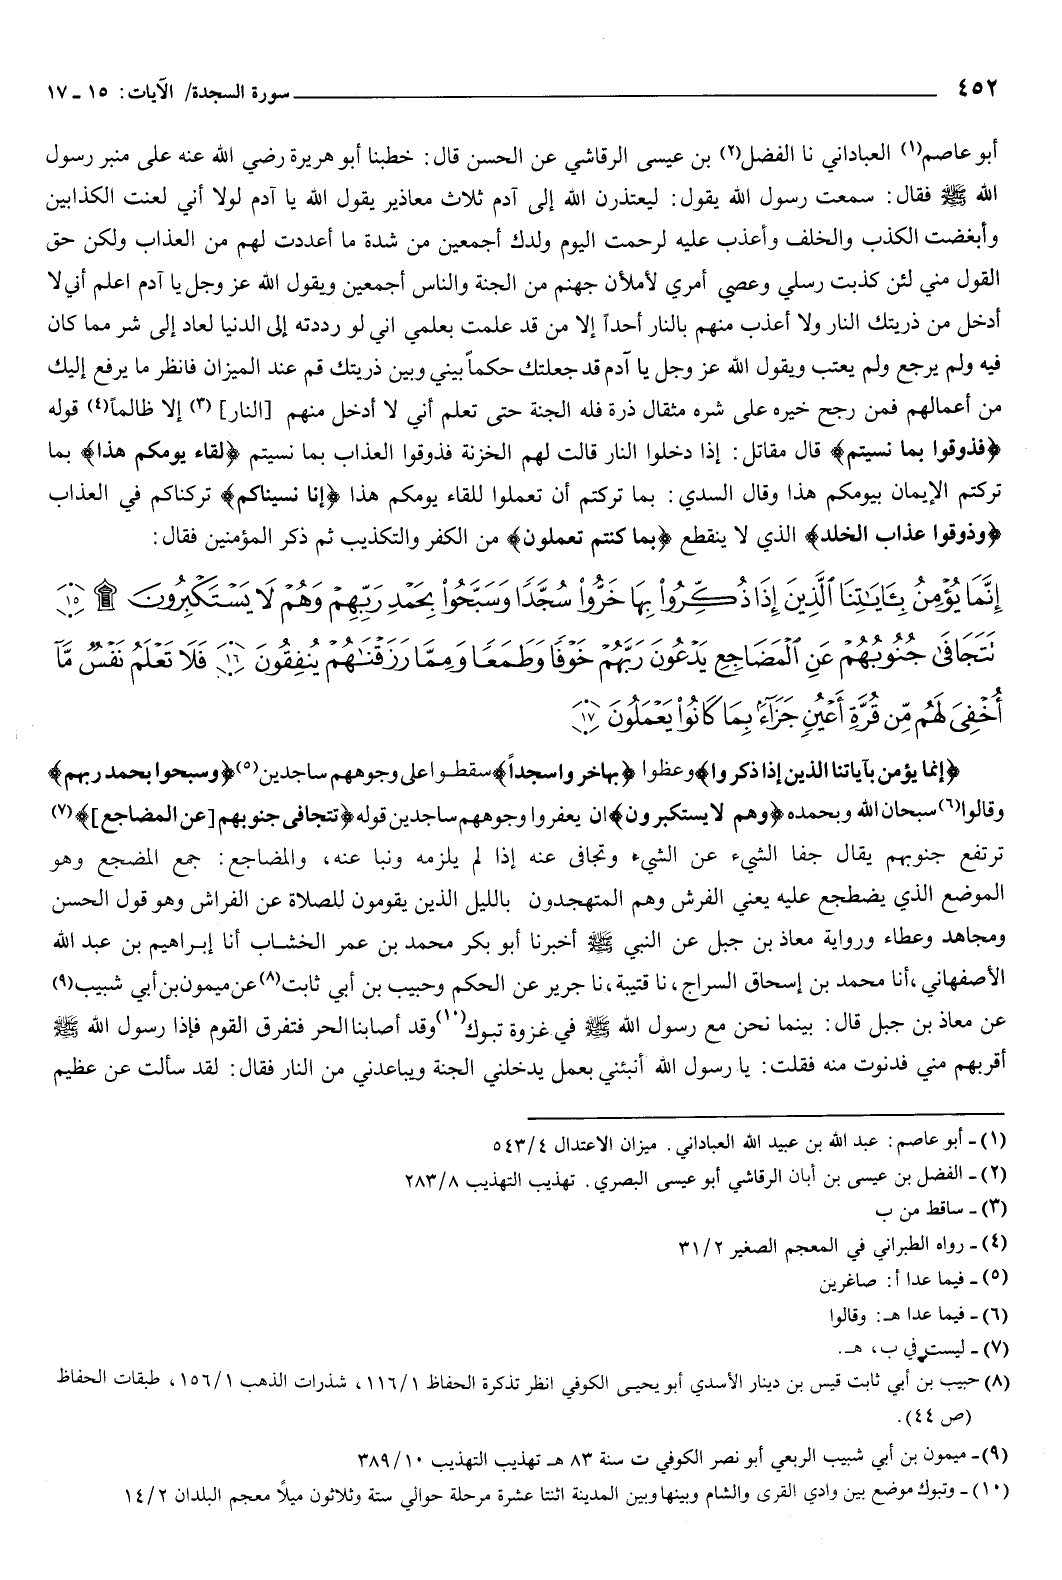 ٤٥٢ سورة السجدة/ الآيات: ١٥ ـ ١٧
أبو عاصم(١) العباداني نا الفضل(٢) بن عيسى الرقاشي عن الحسن قال: خطبنا أبو هريرة رضي الله عنه على منبر رسول
الله ﷺ فقال: سمعت رسول الله يقول: ليعتذرن الله إلى آدم ثلاث معاذير يقول الله يا آدم لولا أني لعنت الكذابين
وأبغضت الكذب والخلف وأعذب عليه لرحمت اليوم ولدك أجمعين من شدة ما أعددت لهم من العذاب ولكن حق
القول مني لئن كذبت رسلي وعصي أمري لأملأن جهنم من الجنة والناس أجمعين ويقول الله عز وجل يا آدم اعلم أني لا
أدخل من ذريتك النار ولا أعذب منهم بالنار أحداً إلا من قد علمت بعلمي اني لو رددته إلى الدنيا لعاد إلى شر مما كان
فيه ولم يرجع ولم يعتب ويقول الله عز وجل يا آدم قد جعلتك حكماً بيني وبين ذريتك قم عند الميزان فانظر ما يرفع إليك
من أعمالهم فمن رجح خيره على شره مثقال ذرة فله الجنة حتى تعلم أني لا أدخل منهم [النار] (٣) إلا ظالماً(٤) قوله
﴿فذوقوا بما نسيتم﴾ قال مقاتل: إذا دخلوا النار قالت لهم الخزنة فذوقوا العذاب بما نسيتم ﴿لقاء يومكم هذا﴾ بما
تركتم الإيمان بيومكم هذا وقال السدي: بما تركتم أن تعملوا للقاء يومكم هذا ﴿إنا نسيناكم﴾ تركناكم في العذاب
﴿وذوقوا عذاب الخلد﴾ الذي لا ينقطع ﴿بما كنتم تعملون﴾ من الكفر والتكذيب ثم ذكر المؤمنين فقال:
إِنَّمَا يُؤْمِنُ بِـَٔايَٰتِنَا ٱلَّذِينَ إِذَا ذُكِّرُوا۟ بِهَا خَرُّوا۟ سُجَّدًا وَسَبَّحُوا۟ بِحَمْدِ رَبِّهِمْ وَهُمْ لَا يَسْتَكْبِرُونَ ۩ ﴿١٥﴾
تَتَجَافَىٰ جُنُوبُهُمْ عَنِ ٱلْمَضَاجِعِ يَدْعُونَ رَبَّهُمْ خَوْفًا وَطَمَعًا وَمِمَّا رَزَقْنَٰهُمْ يُنفِقُونَ ﴿١٦﴾ فَلَا تَعْلَمُ نَفْسٌ مَّآ
أُخْفِىَ لَهُم مِّن قُرَّةِ أَعْيُنٍ جَزَآءًۢ بِمَا كَانُوا۟ يَعْمَلُونَ ﴿١٧﴾
﴿إنما يؤمن بآياتنا الذين إذا ذكروا﴾ وعظوا ﴿بها خروا سجداً﴾ سقطوا على وجوههم ساجدين(٥) ﴿وسبحوا بحمد ربهم﴾
وقالوا(٦) سبحان الله وبحمده ﴿وهم لا يستكبرون﴾ ان يعفروا وجوههم ساجدين قوله ﴿تتجافى جنوبهم [عن المضاجع]﴾(٧)
ترتفع جنوبهم يقال جفا الشيء عن الشيء وتجافى عنه إذا لم يلزمه ونبا عنه، والمضاجع: جمع المضجع وهو
الموضع الذي يضطجع عليه يعني الفرش وهم المتهجدون بالليل الذين يقومون للصلاة عن الفراش وهو قول الحسن
ومجاهد وعطاء ورواية معاذ بن جبل عن النبي ﷺ أخبرنا أبو بكر محمد بن عمر الخشاب أنا إبراهيم بن عبد الله
الأصفهاني ،أنا محمد بن إسحاق السراج ،نا قتيبة ،نا جرير عن الحكم وحبيب بن أبي ثابت(٨) عن ميمون بن أبي شبيب(٩)
عن معاذ بن جبل قال: بينما نحن مع رسول الله ﷺ في غزوة تبوك(١٠) وقد أصابنا الحر فتفرق القوم فإذا رسول الله ﷺ
أقربهم مني فدنوت منه فقلت: يا رسول الله أنبئني بعمل يدخلني الجنة ويباعدني من النار فقال: لقد سألت عن عظيم
(١) ـ أبو عاصم: عبد الله بن عبيد الله العباداني. ميزان الاعتدال ٥٤٣/٤
(٢) ـ الفضل بن عيسى بن أبان الرقاشي أبو عيسى البصري. تهذيب التهذيب ٢٨٣/٨
(٣) ـ ساقط من ب
(٤) ـ رواه الطبراني في المعجم الصغير ٣١/٢
(٥) ـ فيما عدا أ: صاغرين
(٦) ـ فيما عدا هـ: وقالوا
(٧) ـ ليست في ب، هـ.
(٨) حبيب بن أبي ثابت قيس بن دينار الأسدي أبو يحيى الكوفي انظر تذكرة الحفاظ ١١٦/١، شذرات الذهب ١٥٦/١، طبقات الحفاظ
(ص ٤٤).
(٩) ـ ميمون بن أبي شبيب الربعي أبو نصر الكوفي ت سنة ٨٣ هـ تهذيب التهذيب ٣٨٩/١٠
(١٠) ـ وتبوك موضع بين وادي القرى والشام وبينها وبين المدينة اثنتا عشرة مرحلة حوالي ستة وثلاثون ميلاً معجم البلدان ١٤/٢